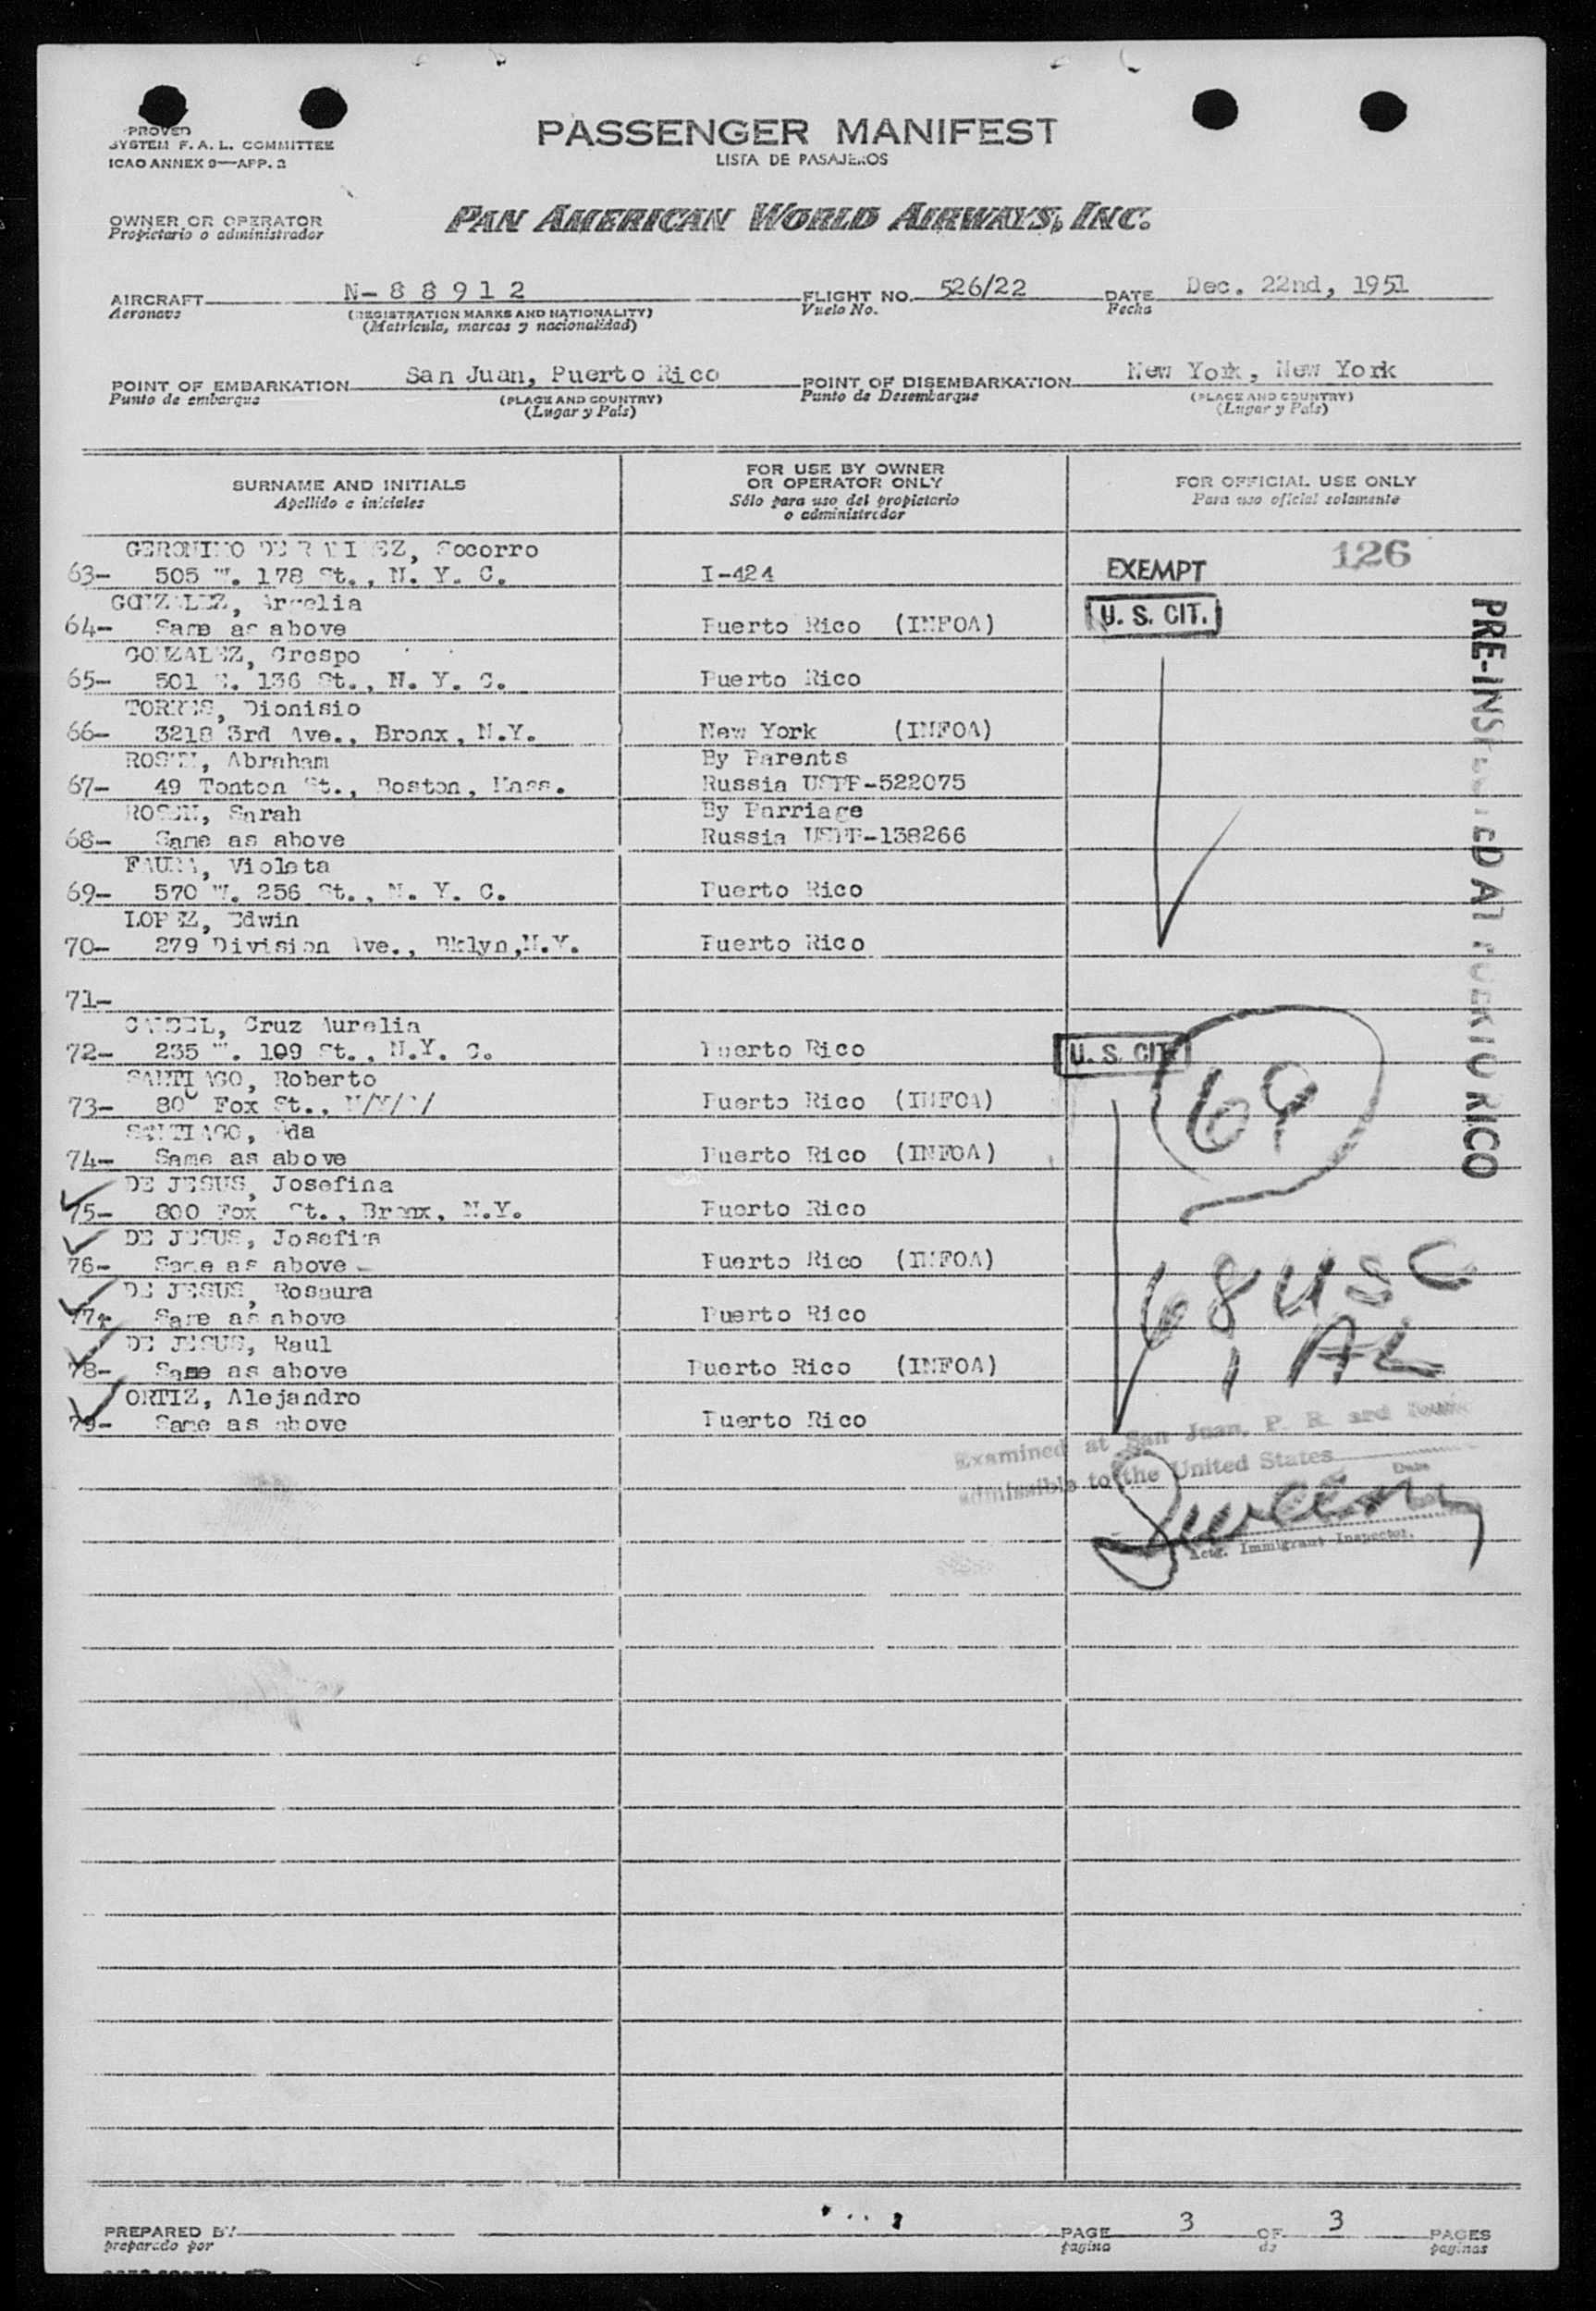 PROVED
SYSTEM F. A. L. COMMITTEE
ICAO ANNEX 9—APP. 2
PASSENGER MANIFEST
LISTA DE PASAJEROS
OWNER OR OPERATOR
Propietario o administrador
PAN AMERICAN WORLD AIRWAYS, INC.
AIRCRAFT N- 8 8 9 1 2 FLIGHT NO. 526/22 DATE Dec. 22nd, 1951
Aeronave (REGISTRATION MARKS AND NATIONALITY) Vuelo No. Fecha
(Matricula, marcas y nacionalidad)
POINT OF EMBARKATION San Juan, Puerto Rico POINT OF DISEMBARKATION New York, New York
Punto de embarque (PLACE AND COUNTRY) Punto de Desembarque (PLACE AND COUNTRY)
(Lugar y País) (Lugar y País)
SURNAME AND INITIALS
Apellido e iniciales
FOR USE BY OWNER
OR OPERATOR ONLY
Sólo para uso del propietario
o administrador
FOR OFFICIAL USE ONLY
Para uso oficial solamente
GERONIMO DE RAMIREZ, Socorro 126
63- 505 W. 178 St., N. Y. C. I-424 EXEMPT
GONZALEZ, Argelia
64- Same as above Puerto Rico (INFOA) U. S. CIT.
GONZALEZ, Crespo
65- 501 136 St., N. Y. C. Puerto Rico
TORRES, Dionisio
66- 3218 3rd Ave., Bronx, N.Y. New York (INFOA)
ROSEN, Abraham By Parents
67- 49 Tonton St., Boston, Mass. Russia USPP-522075
ROSEN, Sarah By Parriage
68- Same as above Russia USPP-138266
Violeta
69- 570 W. 256 St., N. Y. C. Puerto Rico
LOPEZ, Edwin
70- 279 Division Ave., Bklyn,N.Y. Puerto Rico
71-
CANCEL, Cruz Aurelia
72- 235 W. 109 St., N.Y. C. Puerto Rico U. S. CIT.
69
SANTIAGO, Roberto
73- 800 Fox St., N/Y/C/ Puerto Rico (INFOA)
SANTIAGO, Ada
74- Same as above Puerto Rico (INFOA)
DE JESUS, Josefina
75- 800 Fox St., Bronx, N.Y. Puerto Rico
DE JESUS, Josefina
76- Same as above - Puerto Rico (INFOA)
68 USC
DE JESUS, Rosaura
77- Same as above Puerto Rico
1 AL
DE JESUS, Raul
78- Same as above Puerto Rico (INFOA)
ORTIZ, Alejandro
79- Same as above Puerto Rico
PRE-INSPECTED AT PUERTO RICO
Examined at San Juan, P. R. and found
admissible to the United States
Date
Actg. Immigrant Inspector.
PREPARED BY PAGE 3 OF 3 PAGES
preparado por pagina de paginas